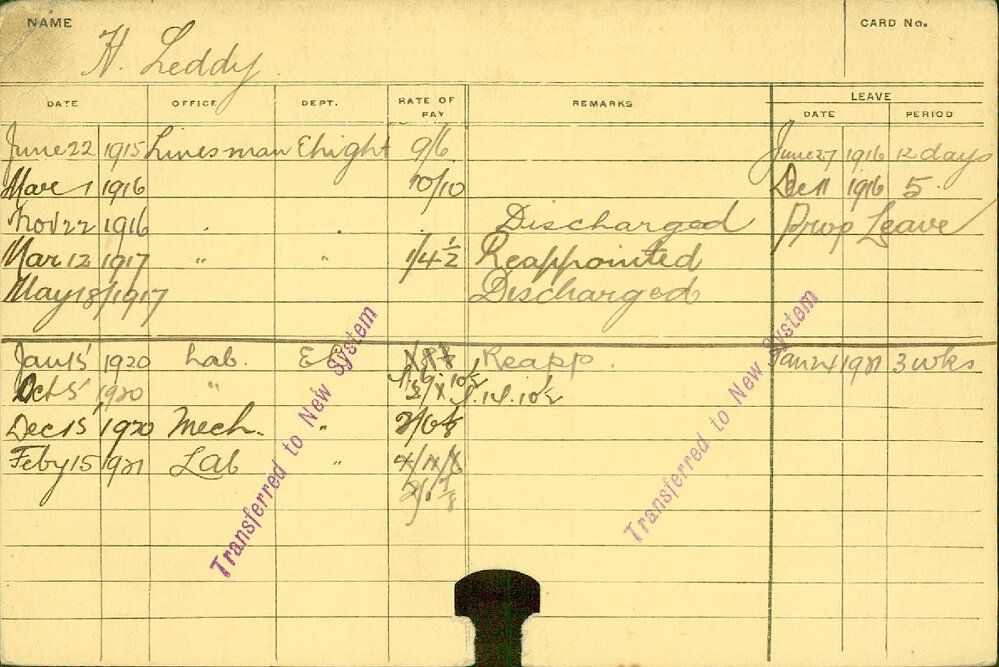 NAME CARD No.
H. Leddy
DATE OFFICE DEPT. RATE OF PAY REMARKS LEAVE
DATE PERIOD
June 22 1915 Linesman Elright 9/6 June 27 1916 12 days
Mar 1 1916 10/10 Dec 11 1916 5
Nov 22 1916 " " Discharged Prop Leave
Mar 12 1917 " " 1/4½ Reappointed
May 18/1917 Discharged
Jan 15 1920 Lab. Reapp. Jan 24 1921 3 wks
Oct 5 1920 " 1.14.10½
Dec 15 1920 Mech. "
Feby 15 1921 Lab "
Transferred to New System
Transferred to New System